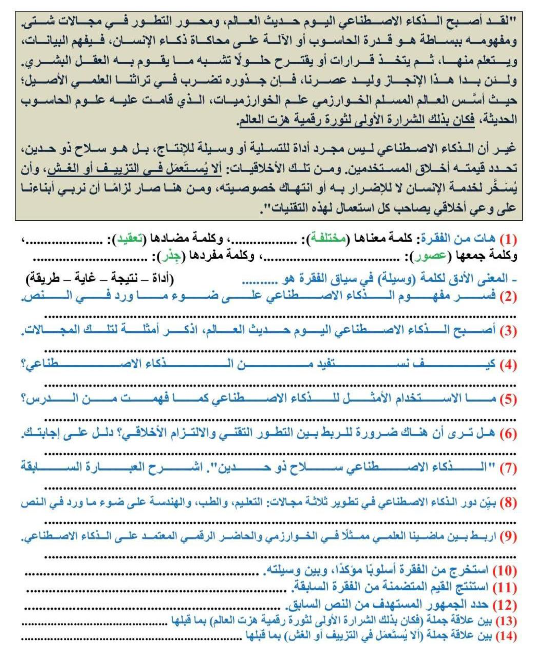 "لقد أصبح الذكاء الاصطناعي اليوم حديث العالم، ومحور التطور في مجالات شتى.
ومفهومه ببساطة هو قدرة الحاسوب أو الآلة على محاكاة ذكاء الإنسان، فيفهم البيانات،
ويتعلم منها، ثم يتخذ قرارات أو يقترح حلولًا تشبه ما يقوم به العقل البشري.
ولئن بدا هذا الإنجاز وليد عصرنا، فإن جذوره تضرب في تراثنا العلمي الأصيل؛
حيث أسس العالم المسلم الخوارزمي علم الخوارزميات، الذي قامت عليه علوم الحاسوب
الحديثة، فكان بذلك الشرارة الأولى لثورة رقمية هزت العالم.
غير أن الذكاء الاصطناعي ليس مجرد أداة للتسلية أو وسيلة للإنتاج، بل هو سلاح ذو حدين،
تحدد قيمته أخلاق المستخدمين. ومن تلك الأخلاقيات: ألا يُستعمَل في التزييف أو الغش، وأن
يُسَخَّر لخدمة الإنسان لا للإضرار به أو انتهاك خصوصيته، ومن هنا صار لزامًا أن نربي أبناءنا
على وعي أخلاقي يصاحب كل استعمال لهذه التقنيات".
(1) هات من الفقرة: كلمة معناها (مختلفة): ................، وكلمة مضادها (تعقيد): ................،
وكلمة جمعها (عصور): ................، وكلمة مفردها (جذر): ................
- المعنى الأدق لكلمة (وسيلة) في سياق الفقرة هو .......... (أداة – نتيجة – غاية – طريقة)
(2) فسر مفهوم الذكاء الاصطناعي على ضوء ما ورد في النص.
(3) أصبح الذكاء الاصطناعي اليوم حديث العالم، اذكر أمثلة لتلك المجالات.
(4) كيف نستفيد من الذكاء الاصطناعي؟
(5) ما الاستخدام الأمثل للذكاء الاصطناعي كما فهمت من الدرس؟
(6) هل ترى أن هناك ضرورة للربط بين التطور التقني والالتزام الأخلاقي؟ دلل على إجابتك.
(7) "الذكاء الاصطناعي سلاح ذو حدين". اشرح العبارة السابقة
(8) بيّن دور الذكاء الاصطناعي في تطوير ثلاثة مجالات: التعليم، والطب، والهندسة على ضوء ما ورد في النص
(9) اربط بين ماضينا العلمي ممثلًا في الخوارزمي والحاضر الرقمي المعتمد على الذكاء الاصطناعي.
(10) استخرج من الفقرة أسلوبًا مؤكدًا، وبين وسيلته. ................
(11) استنتج القيم المتضمنة من الفقرة السابقة. ................
(12) حدد الجمهور المستهدف من النص السابق. ................
(13) بين علاقة جملة (فكان بذلك الشرارة الأولى لثورة رقمية هزت العالم) بما قبلها ................
(14) بين علاقة جملة (ألا يُستعمَل في التزييف أو الغش) بما قبلها ................